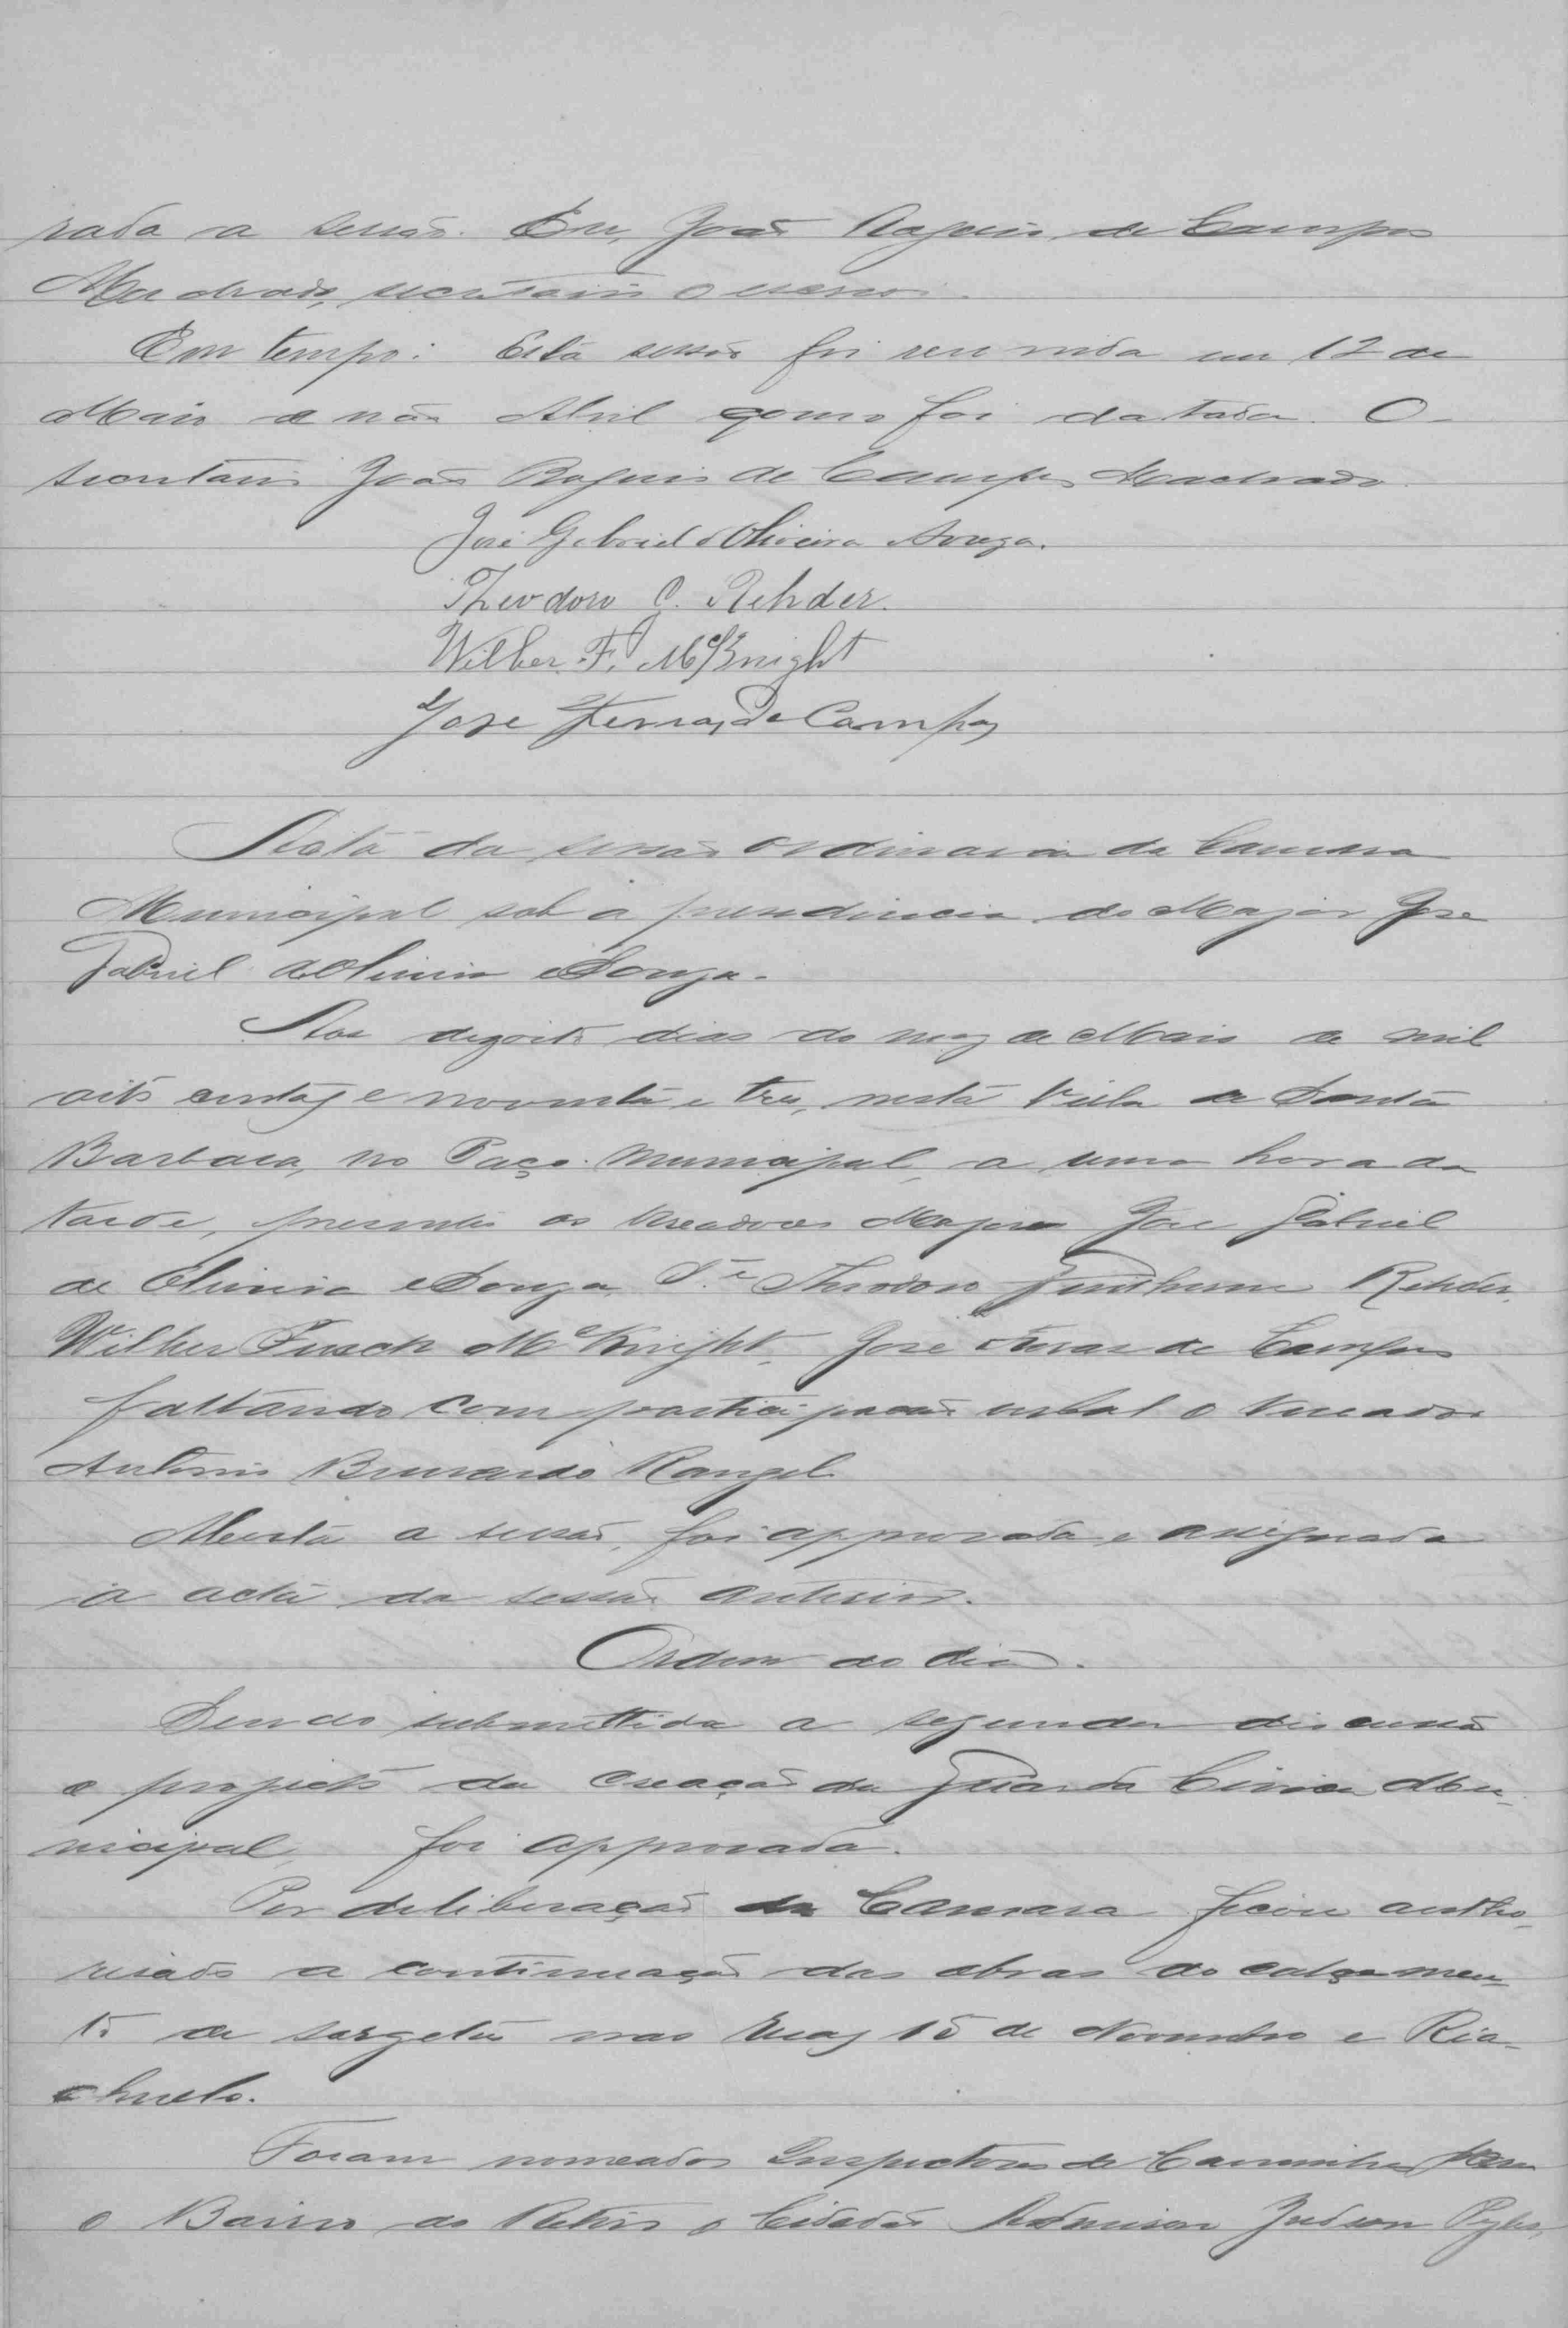 rada a sessão. Eu, João Rogerio de Campos
Machado, secretario o escrevi.
Em tempo: Esta sessão foi reunida em 12 de
Maio e não Abril como foi datada. O
secretario João Rogerio de Campos Machado.
José Gabriel d'Oliveira Souza.
Theodoro G. Rehder.
Wilber F. McKnight
Jose Ferraz de Campos
Acta da sessão ordinaria da Camara
Municipal sob a presidencia do Major Jose
Gabriel de Oliveira e Souza.
Aos dezoito dias do mez de Maio de mil
oito centos e noventa e tres, nesta Villa de Santa
Barbara, no Paço Municipal, a uma hora da
tarde, presentes os Vereadores Major Jose Gabriel
de Oliveira e Souza, Te Theodoro Guilherme Rehder,
Wilber McKnight, Jose Ferraz de Campos
faltando com participação verbal o Vereador
Antonio Bernardo Rangel.
Aberta a sessão, foi approvada e assignada
a acta da sessão anterior.
Ordem do dia.
Sendo submettida a segunda discussão
o projecto da creação da Guarda Civica Mu-
nicipal, foi approvada.
Por deliberação da Camara ficou autho-
risado a continuação das obras do calçamen-
to de sargetas nas ruas 15 de Novembro e Ria-
chuelo.
Foram nomeados Inspectores de Caminhos para
o Bairro do Retiro o Cidadão Judson Pyles,